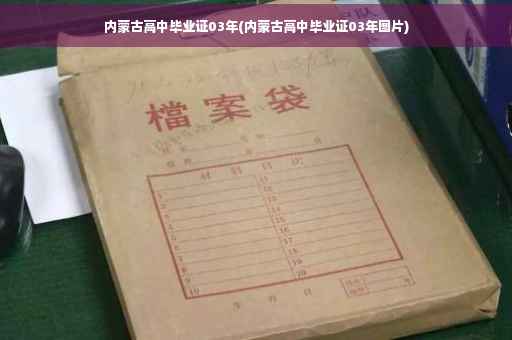 内蒙古高中毕业证03年(内蒙古高中毕业证03年图片)
檔案袋
材料目次
1 11
2 12
3 13
4 14
5 15
6 16
7 17
8 18
9 19
10 20
年 月 日